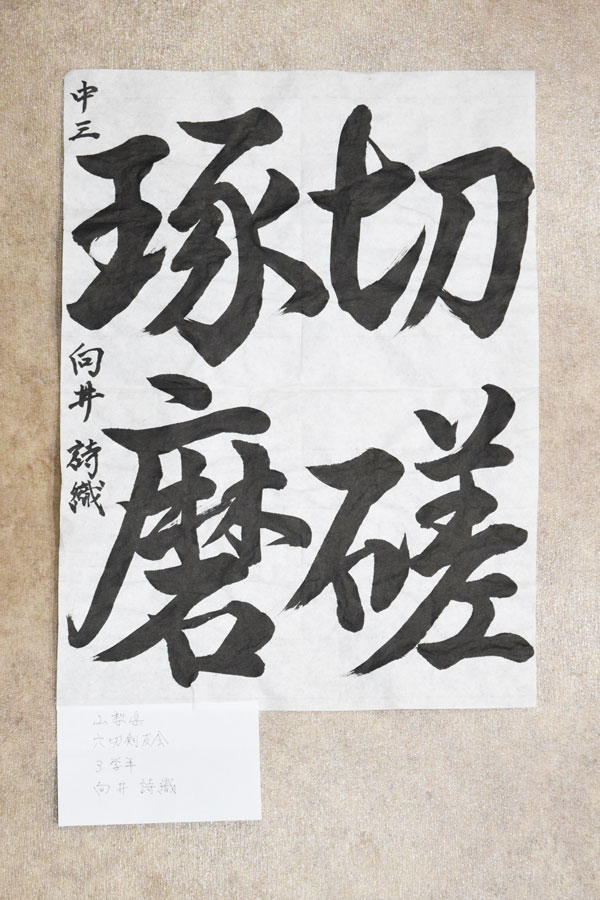 切磋
琢磨
中三 向井 詩織
山梨県
穴切剣友会
3学年
向井 詩織